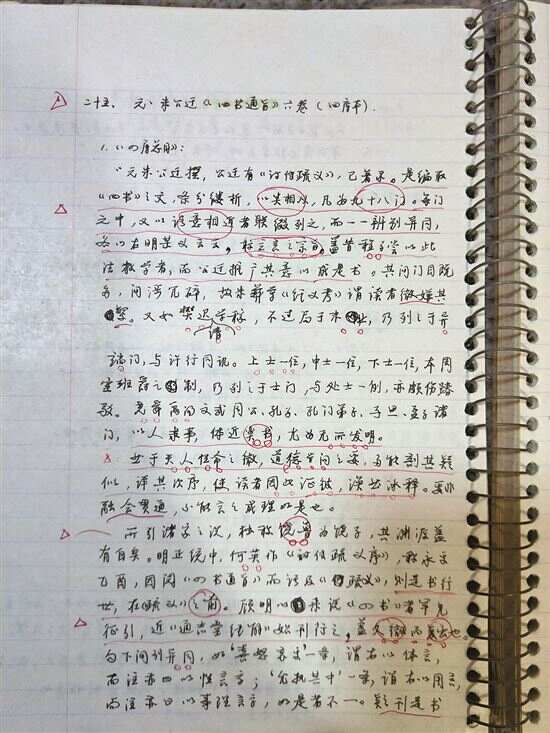 二十五、元·朱公迁《四书通旨》六卷（四库本）.
1.《四库总目》:
"元朱公迁撰，公迁有《诗传疏义》，已著录。是编取
《四书》之文，条分缕析，以类相从，凡为九十八门。每门
之中，又以语意相近者联缀列之，而一一辨别异同，
各以右明某义云云，标立言之宗旨。盖昔程子尝以此
法教学者，而公迁推广其意以成是书。其间门目既
多，间涉冗碎，故朱彝尊《经义考》谓读者微嫌其
繁。又如樊迟学稼，不过局于末业，乃列之于异
请
端门，与许行同讥。上士一位，中士一位，下士一位，本周
室班爵之制，乃列之于士门，与处士一例，亦颇伤踳
驳。尧舜禹汤文武周公、孔子、孔门弟子、子思、孟子诸
门，以人隶事，体近类书，尤为无所发明。
至于天人性命之微，道德学问之要，多能剖其疑
似，详其次序，使读者因此证彼，涣然冰释。要非
融会贯通，不能言之成理如是也。
而引诸家之说，独称饶鲁为饶子，其渊源盖
有自矣。明正统中，何英作《诗传疏义序》，称永乐
乙酉，因阅《四书通旨》而语及《疏义》，则是书行
世，在《疏义》之前。顾明以来说《四书》者罕见
征引，近《通志堂经解》始刊行之，盖久微而复出也。
句下间注异同，如'喜怒哀乐'一章，谓右以体言，
而注亦曰以性言字；'允执其中'一章，谓右以用言，
而注亦曰以事理言字，如是者不一。疑刊是书